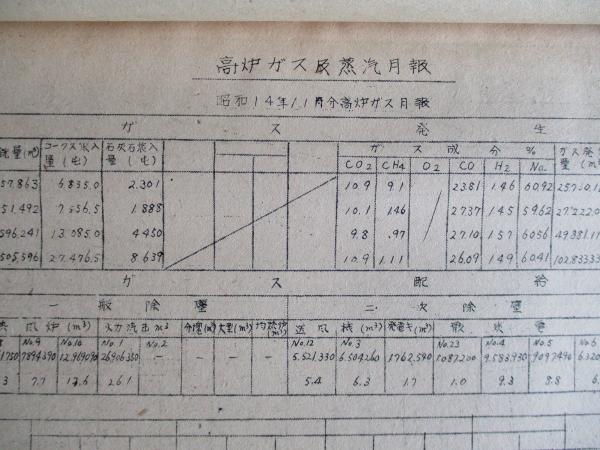 高炉ガス及蒸汽月報
昭和14年11月分高炉ガス月報
ガ ス 発 生
量(m³) コークス装入量(屯) 石灰石装入量(屯) ガス成分% ガス発
CO2 CH4 O2 CO H2 N2 量(m³)
57.863 6.835.0 2.301 10.9 9.1 23.81 1.46 60.92
51.492 7.556.5 1.888 10.1 1.46 27.37 1.45 59.62
596.241 13.085.0 4.450 9.8 .97 27.10 1.57 60.56
505.596 27.476.5 8.639 10.9 1.11 26.09 1.49 60.41
ガ ス 配 給
一般除塵 二次除塵
風炉(m³) 送風機(m³) 発電
No.9 No.10 No.1 No.2 No.12 No.3 No.23 No.4 No.5 No.6
1750 7894390 12969090 26906350 — — — — 5.521.330 6.504260 1762.590 1087200 9.583.930 9097490
3 7.7 12.6 26.1 5.4 6.3 1.7 1.0 9.3 8.8